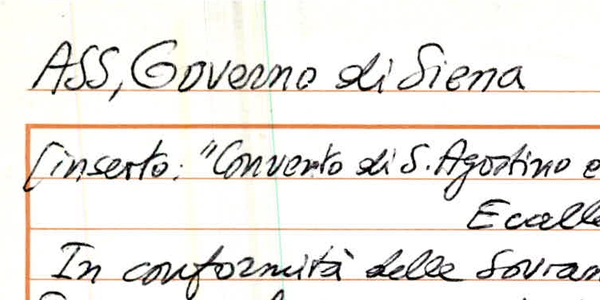 ASS, Governo di Siena
[inserto: "Convento di S. Agostino e
Ecalle
In conformità delle Sovran